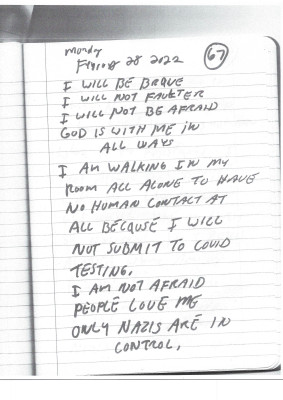 Monday
28 2022
67
I WILL BE BRAVE
I WILL NOT FAULTER
I WILL NOT BE AFRAID
GOD IS WITH ME IN
ALL WAYS
I AM WALKING IN MY
ROOM ALL ALONE TO HAVE
NO HUMAN CONTACT AT
ALL BECAUSE I WILL
NOT SUBMIT TO COVID
TESTING.
I AM NOT AFRAID
PEOPLE LOVE ME
ONLY NAZIS ARE IN
CONTROL.